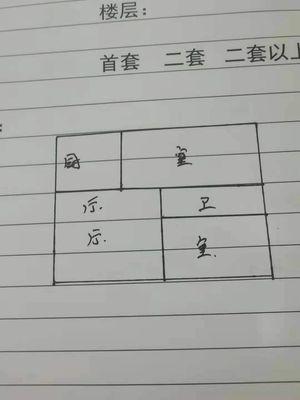 楼层:
首套 二套 二套以上
:
厨 室
厅 卫
厅 室